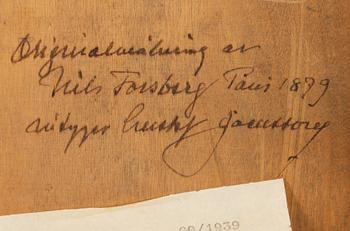 Originalmålning av
Nils Forsberg Paris 1879
intygar Gustaf Jacobsson
00/1939